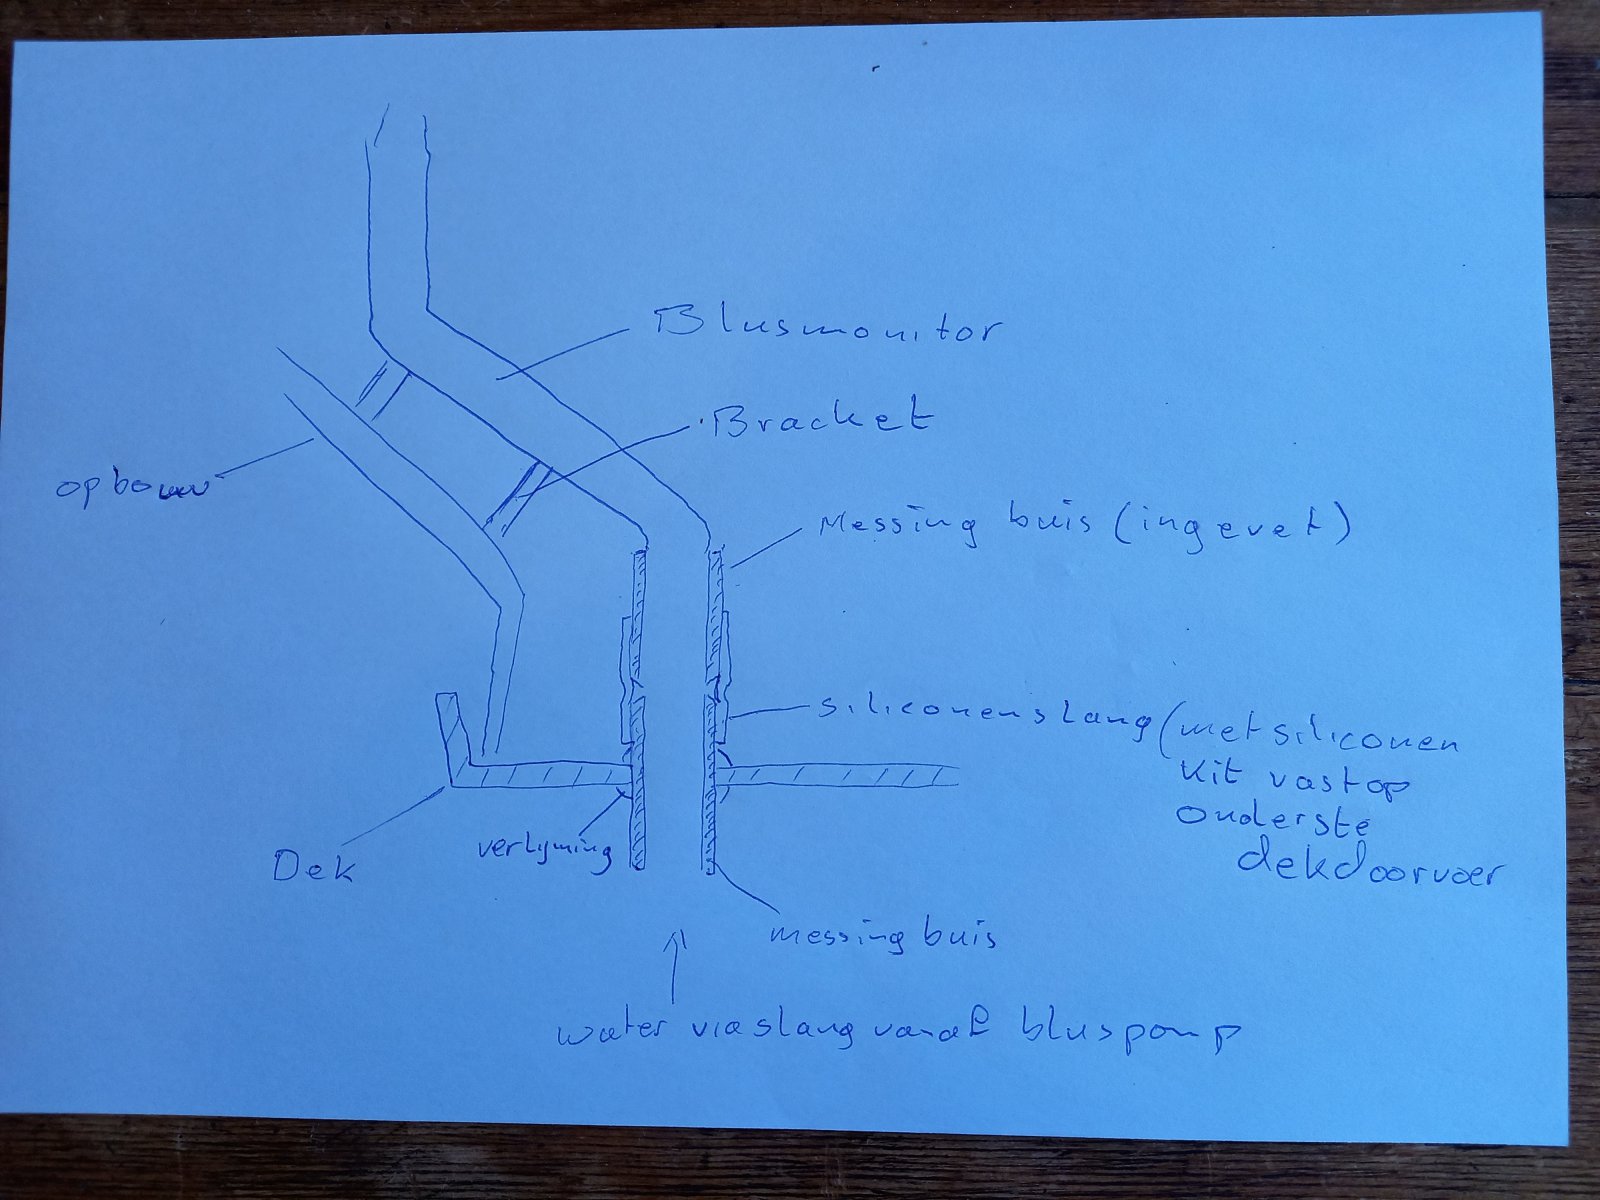 Blusmonitor
Bracket
opbouw
Messing buis (ingevet)
siliconenslang (met siliconen
kit vast op
onderste
dekdoorvoer
verlijming
Dek
messing buis
water via slang vanaf bluspomp